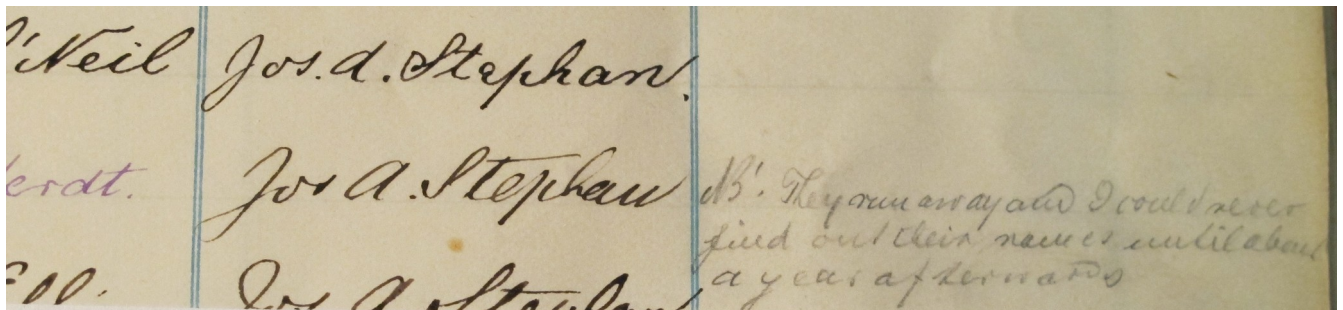 'Neil Jos. A. Stephan.
erdt. Jos A. Stephan
NB. They run away and I could never
find out their names until about
a year afterwards
Jos A Stephan